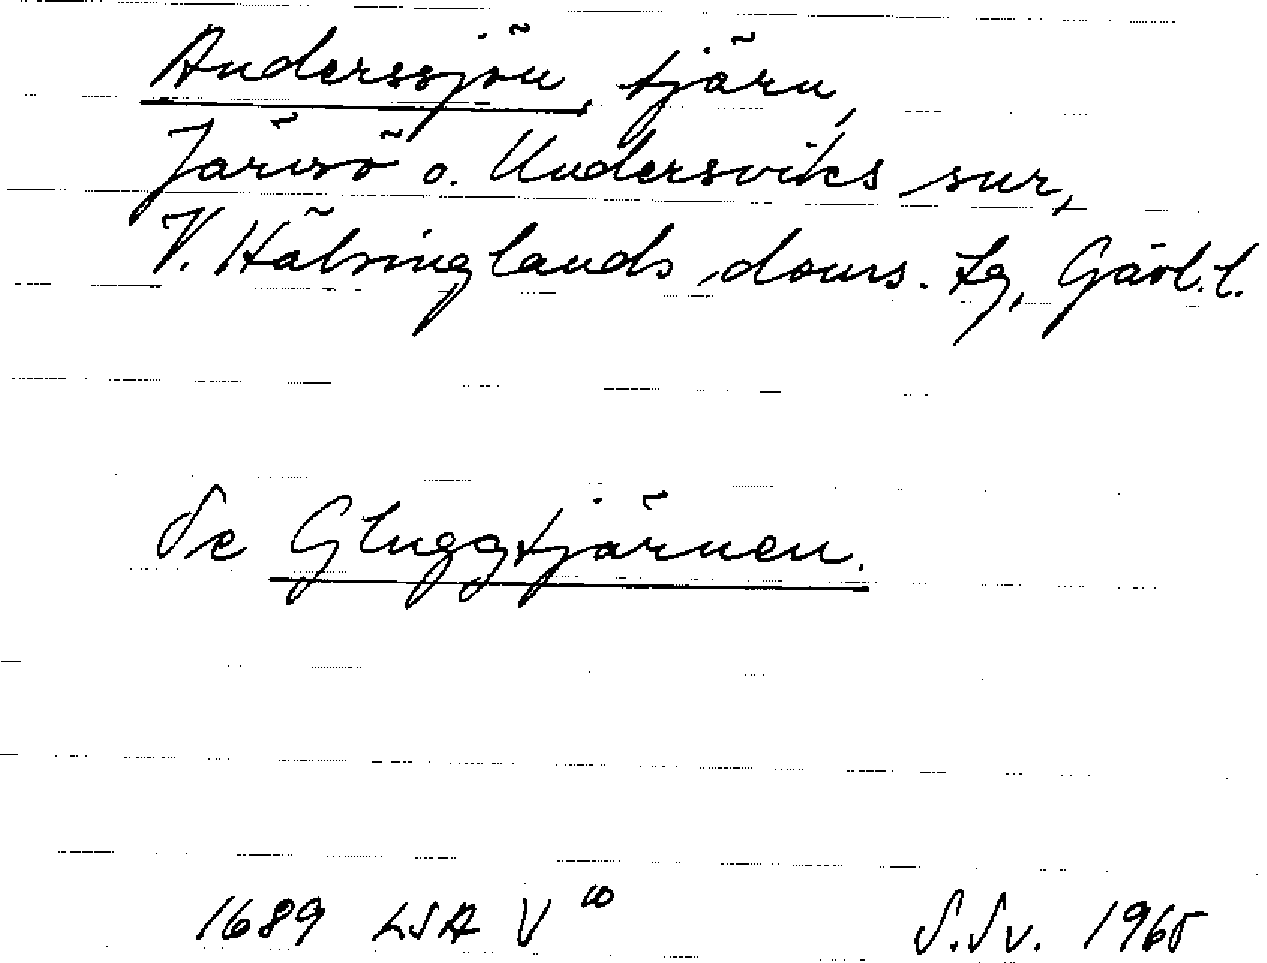 Anderssjön, tjärn,
Järvsö o. Undersviks snr,
V. Hälsinglands doms. tg, Gävl. l.
Se Gluggtjärnen.
1689 LSA V¹⁰ S.Sv. 1965